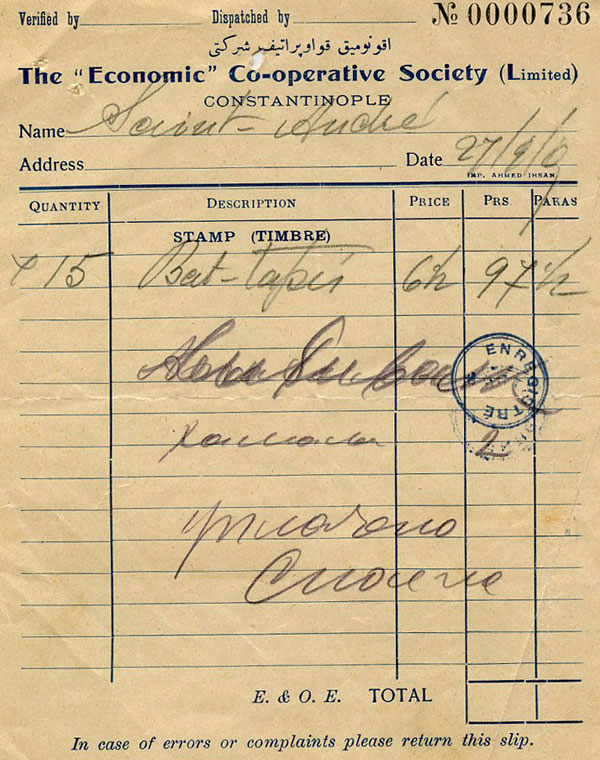 Verified by Dispatched by № 0000736
اقونوميق قواوپراتيف شركتى
The "Economic" Co-operative Society (Limited)
CONSTANTINOPLE
Name Saint-André
Address Date 27/9/
IMP. AHMED IHSAN
QUANTITY DESCRIPTION PRICE PRS. PARAS
STAMP (TIMBRE)
15 Bat-tapis 6½ 97 ½
ENREGISTRÉ
2
E. & O. E. TOTAL
In case of errors or complaints please return this slip.